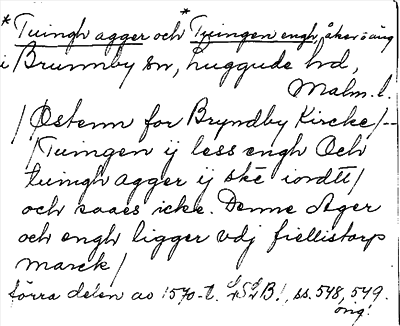 *Tuingh agger och *Tuingen engh, åker o äng
i Brunnby sn, Luggude hd,
Malm. l.
/Østenn for Bryndby Kircke/--
/Tuingen ij less engh Och
tuingh agger ij skē iordtt/
och saaes icke. Denne Ager
och engh ligger vdj fiellistorp
marck/
förra delen av 1570-t. LSLB!, ss. 548, 549.
orig!